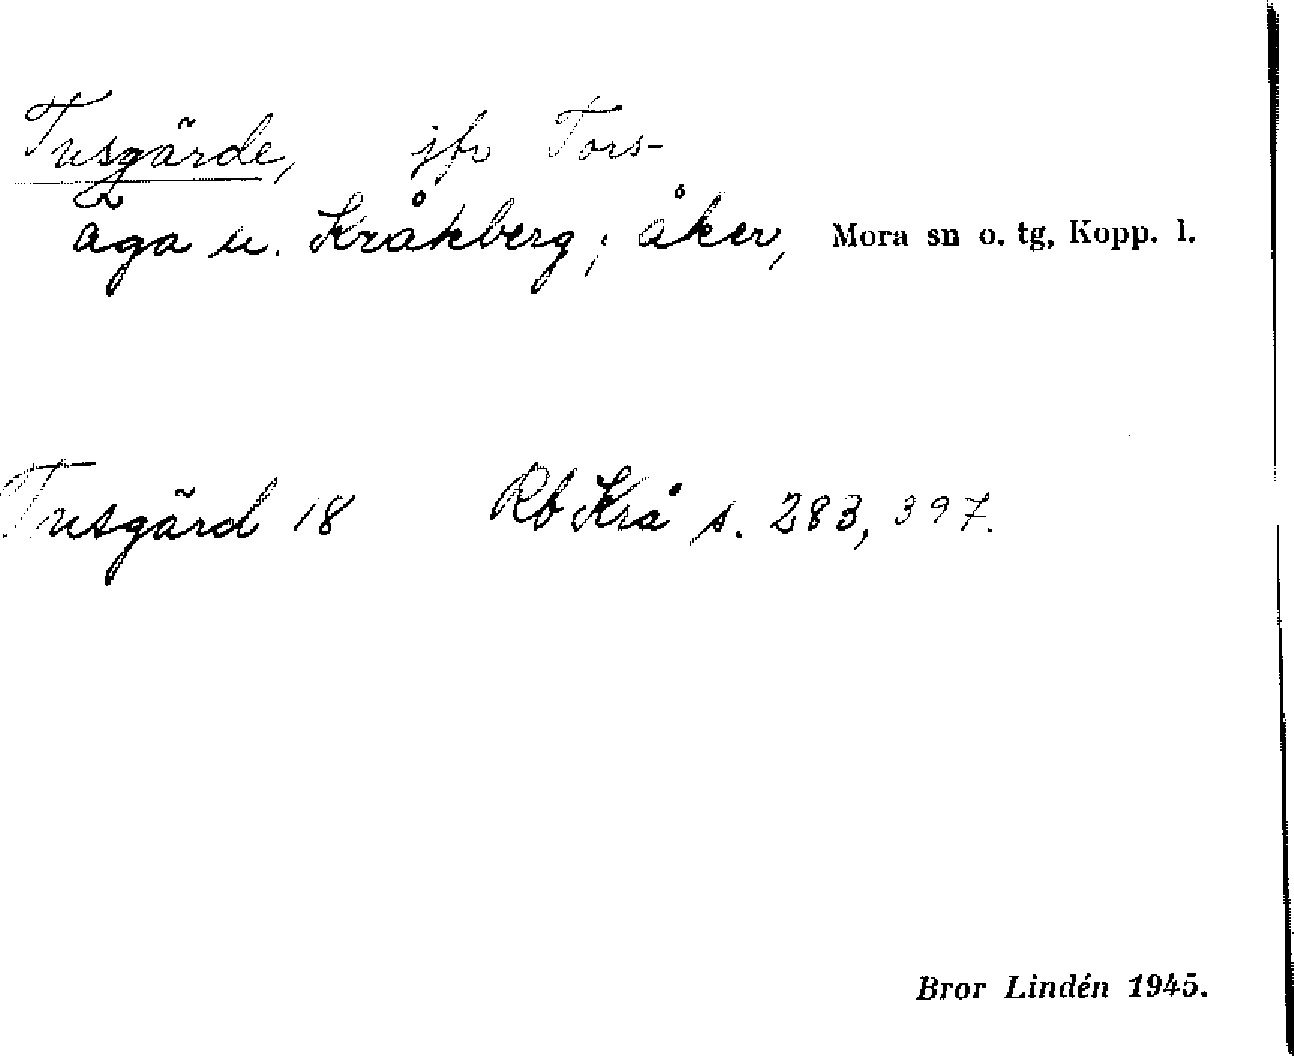 Tusgärde, jfr Tors-
äga u. Kråkberg; åker, Mora sn o. tg, Kopp. l.
Tusgärd 18 Rb Krå s. 283, 397.
Bror Lindén 1945.